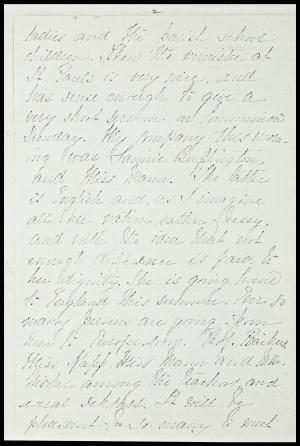 2
ladies and the parish school
children. Then the minister at
St. Pauls is very nice, and
has sense enough to give a
very short sermon on Communion
Sunday. My company this morn-
ing was Fannie Buffington,
and Miss Mann. The latter
is English and, as I imagine
all her nation, rather fussy,
and with the idea that not
enough deference is paid to
her dignity. She is going home
to England this summer. Ever so
many persons are going from
here to Europe
Miss Mann and
among the teachers, and
several scholars. It will be
pleasant, so many to meet